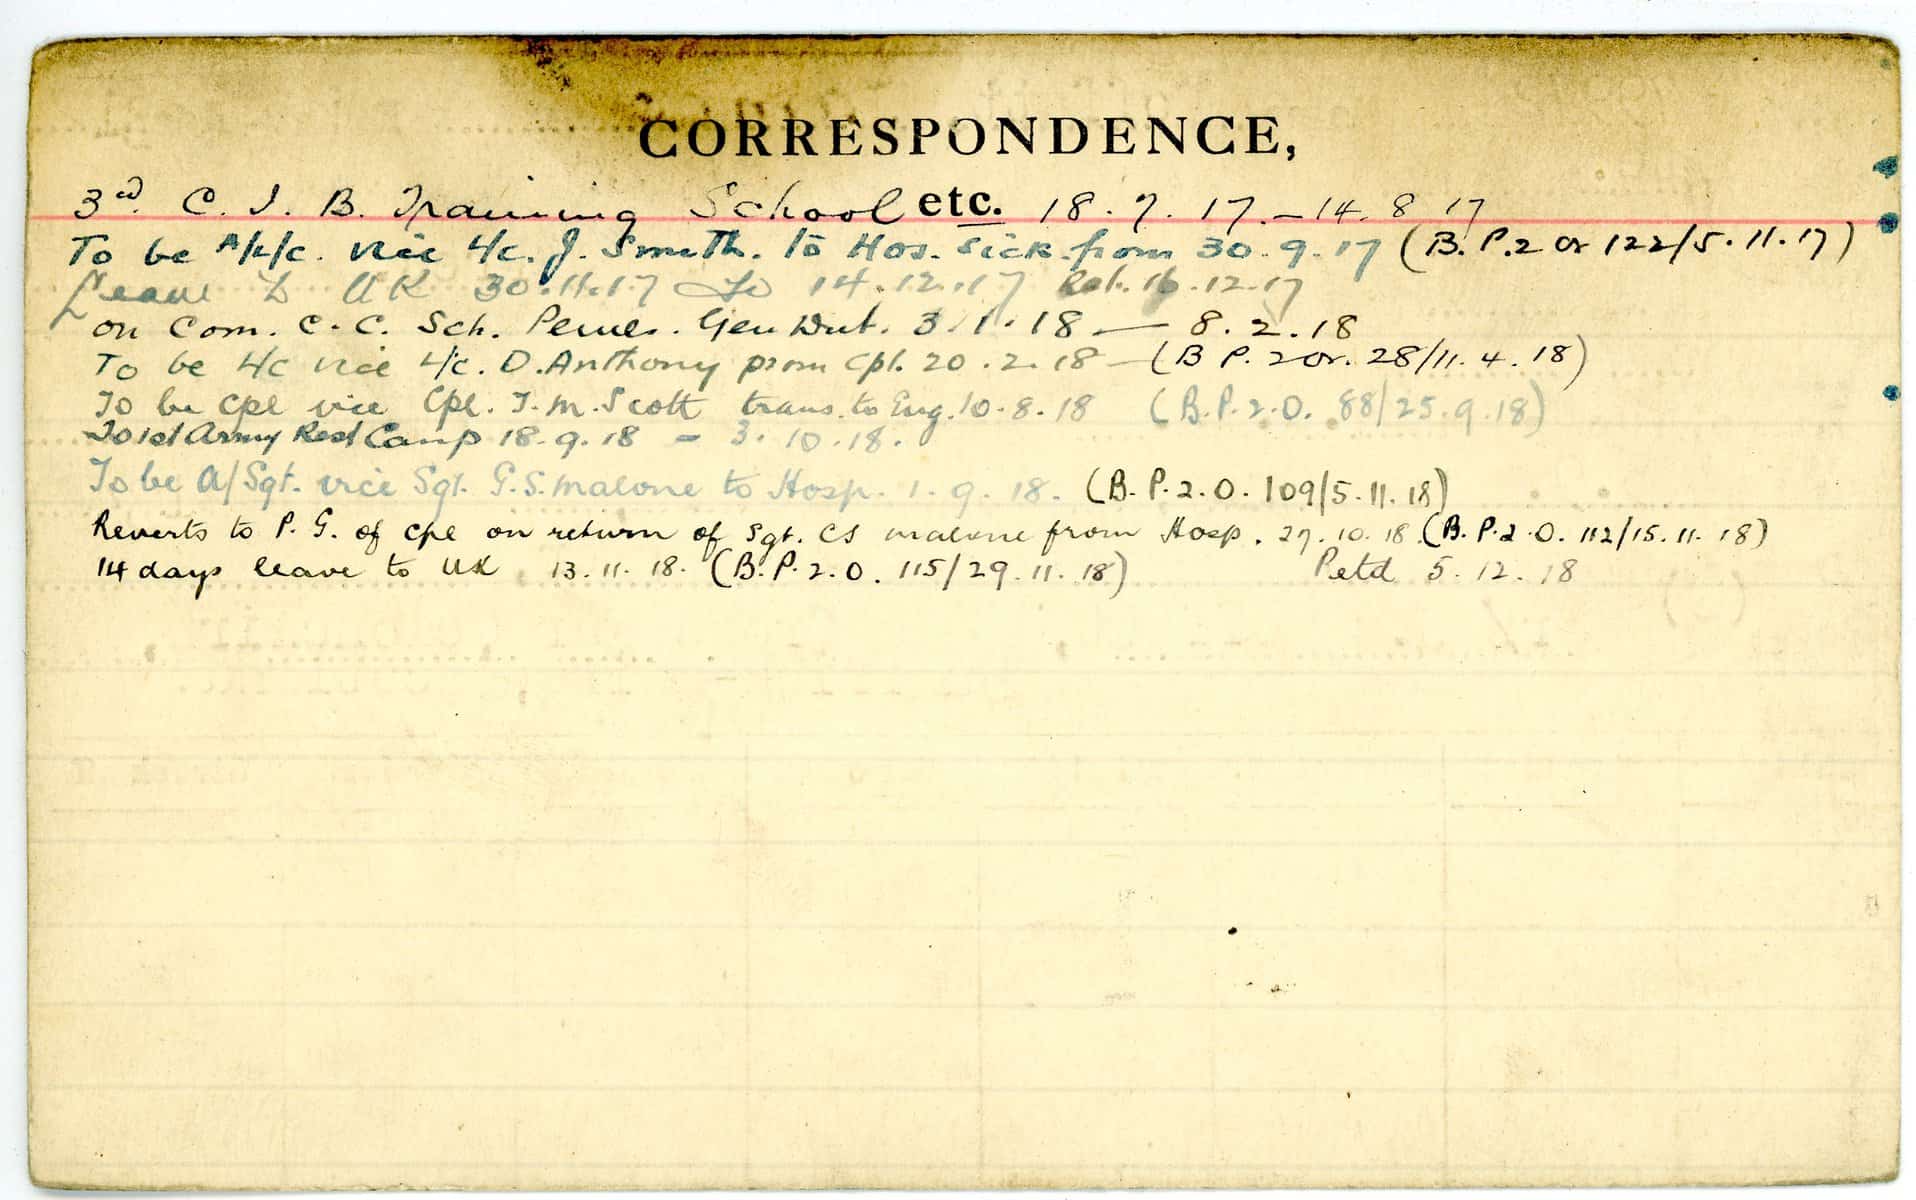 CORRESPONDENCE,
3rd. C. I. B. Training School etc. 18. 7. 17. - 14. 8 17
To be A/L/C. vice L/c. J. Smith. to Hos. sick from 30. 9. 17 (B. P. 2 Or 122/5. 11. 17)
Leave to UK 30. 11. 17 to 14. 12. 17 Ret. 16. 12. 17
on Com. C. C. Sch. Pernes. Gen Dut. 3. 1. 18 — 8. 2. 18
To be L/C vice L/c. D. Anthony prom Cpl. 20. 2. 18 — (B P. 2 Or. 28/11. 4. 18)
To be Cpl vice Cpl. T. M. Scott trans. to Eng. 10. 8. 18 (B. P. 2. O. 88/25. 9. 18)
To 1st Army Rest Camp 18. 9. 18 - 3. 10. 18.
To be A/Sgt. vice Sgt. G. S. Malone to Hosp. 1. 9. 18. (B. P. 2. O. 109/5. 11. 18)
Reverts to P. G. of Cpl on return of Sgt. CS Malone from Hosp. 27. 10. 18. (B. P. 2. O. 112/15. 11. 18)
14 days leave to UK 13. 11. 18. (B. P. 2. O. 115/29. 11. 18) Retd 5. 12. 18